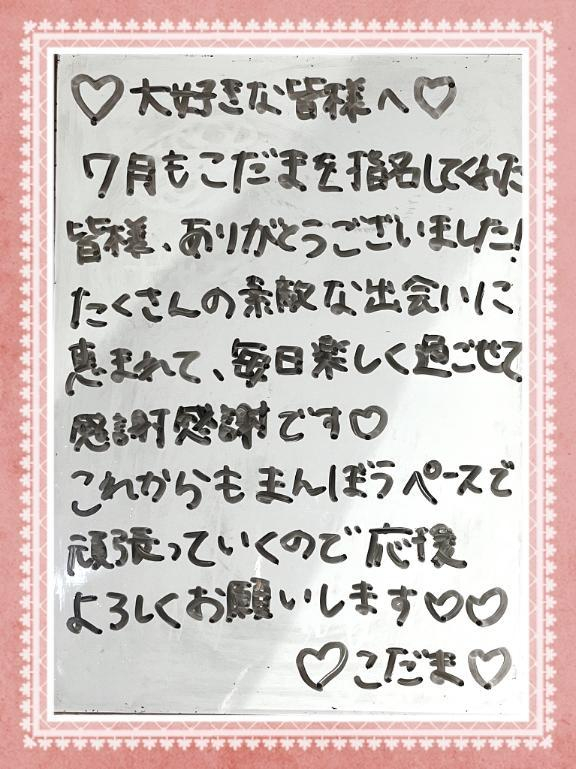 ♡大好きな皆様へ♡
7月もこだまを指名してくれた
皆様、ありがとうございました!
たくさんの素敵な出会いに
恵まれて、毎日楽しく過ごせて
感謝感謝です♡
これからもまんぼうペースで
頑張っていくので応援
よろしくお願いします♡♡
♡こだま♡